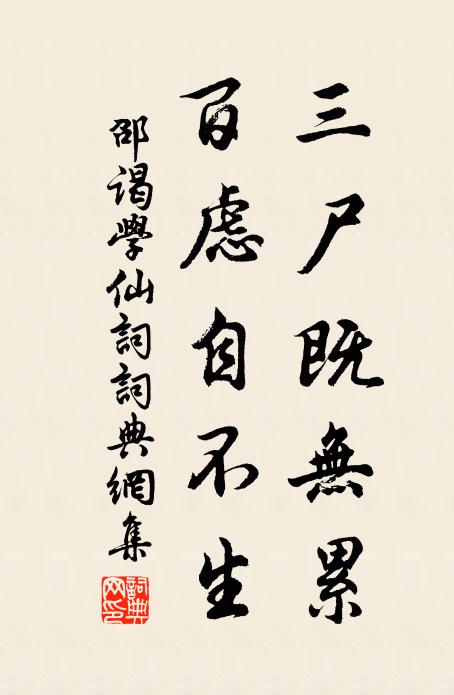 三尸既無累
百慮自不生
邵谒學仙詞詞典網集
詞典網印